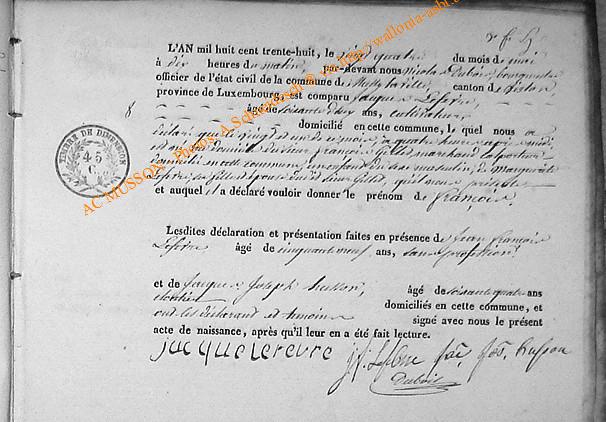 L'AN mil huit cent trente-huit, le vingt quatre du mois de mai
à dix heures de matin, par-devant nous Nicolas Dubois, bourgmestre
officier de l'état civil de la commune de canton de
province de Luxembourg, est comparu Jacques Lefevre,
âgé de soixante deux ans, cultivateur
8
domicilié en cette commune, le quel nous a
déclaré que le vingt et un de ce mois, à quatre heures après midi
est né au domicile de sieur françois Gillet marchand colporteur
domicilié en cette commune, un enfant du sexe masculin, de marguerite
Lefevre, sa fille et épouse du dit sieur Gillet, qu'il nous présente
et auquel il a déclaré vouloir donner le prénom de françois.
TIMBRE DE DIMENSION
45
C.
Lesdites déclaration et présentation faites en présence de Jean françois
Lefevre âgé de cinquante neuf ans, sans profession
et de Jacques Joseph husson, âgé de soixante quatre ans
domiciliés en cette commune, et
ont les déclarant et témoins signé avec nous le présent
acte de naissance, après qu'il leur en a été fait lecture.
jacque Lefevre J. f. Lefevre husson
Dubois
AC MUSSON - Photos: A.Schleich @ via http://wallonia-asbl.